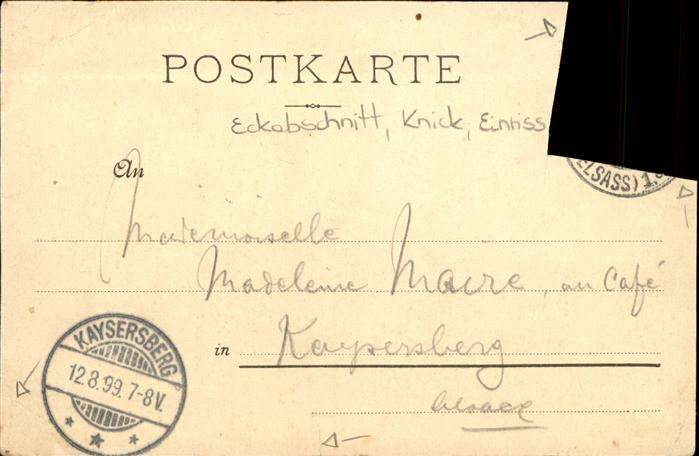 POSTKARTE
Eckabschnitt, Knick, Einriss
ELSASS) 1.
An
Mademoiselle
Madeleine Maire, au Café
in Kaysersberg
Alsace
KAYSERSBERG
12.8.99.7-8V.